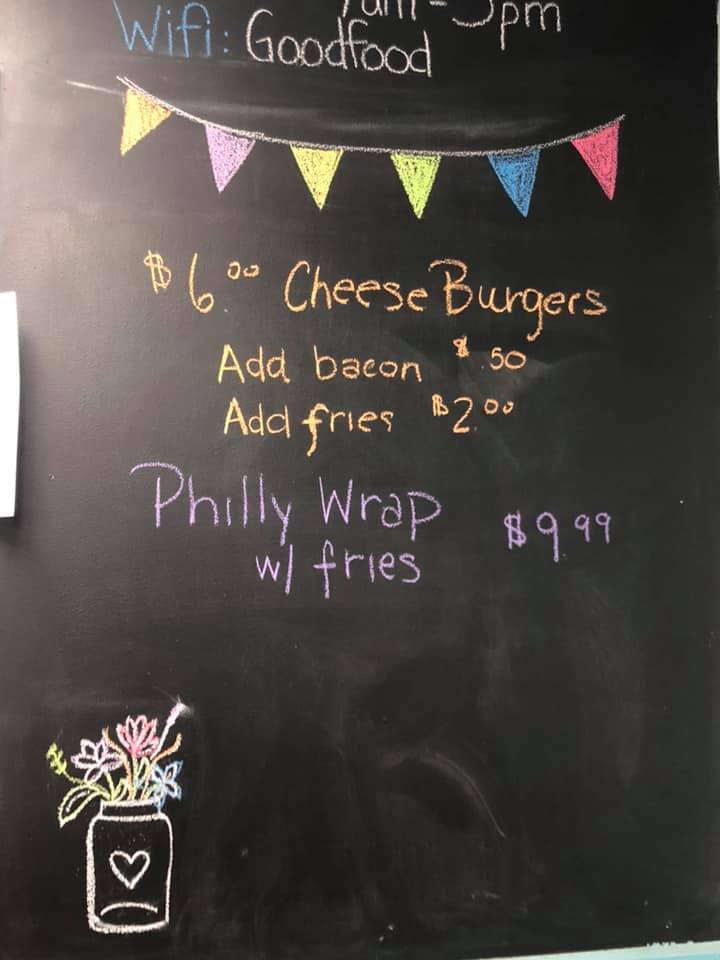 Wifi: Goodfood
$6.00 Cheese Burgers
Add bacon $.50
Add fries $2.00
Philly Wrap $9.99
w/ fries